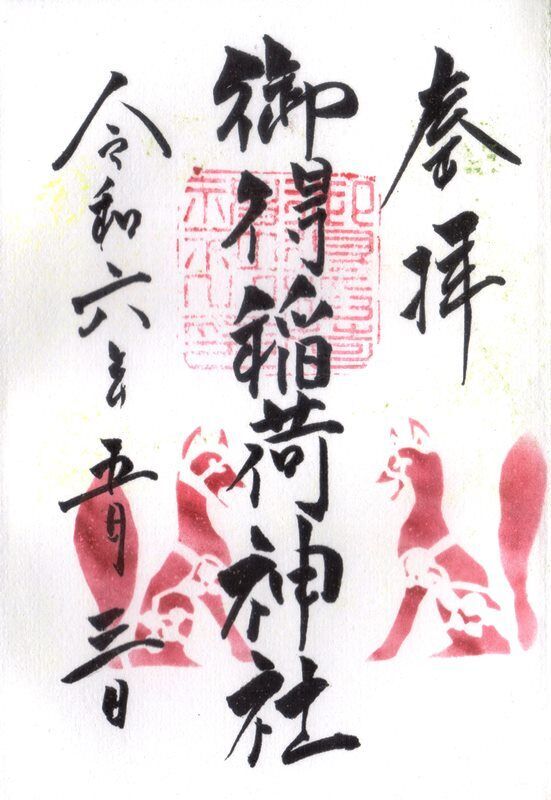 奉拝
御得稲荷神社
令和六年五月三日